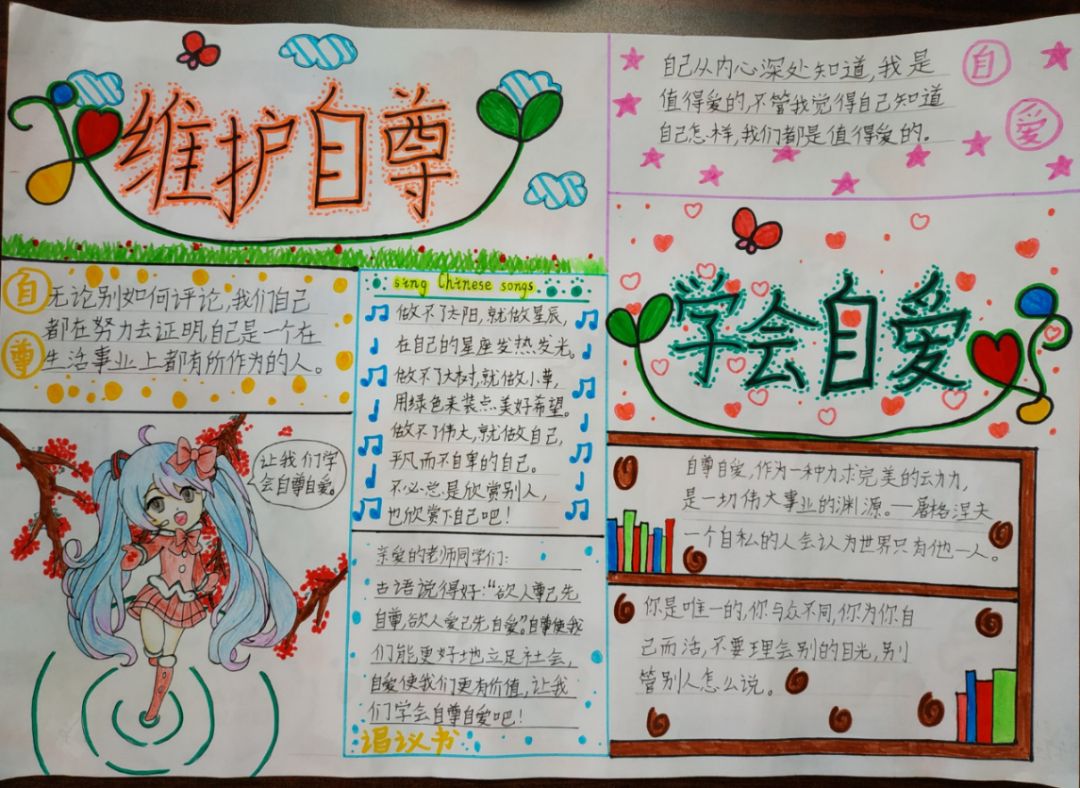 维护自尊
自己从内心深处知道,我是
值得爱的,不管我觉得自己知道
自己怎样,我们都是值得爱的。
自
爱
自
尊
无论别如何评论,我们自己
都在努力去证明,自己是一个在
生活事业上都有所作为的人。
sing Chinese songs
做不了太阳,就做星辰,
在自己的星座发热发光。
做不了大树,就做小草,
用绿色来装点美好希望。
做不了伟大,就做自己,
平凡而不自卑的自己。
不必总是欣赏别人,
也欣赏下自己吧!
学会自爱
让我们学
会自尊自爱。
亲爱的老师同学们:
古语说得好:“欲人尊己先
自尊,欲人爱己先自爱。”自尊使我
们能更好地立足社会,
自爱使我们更有价值,让我
们学会自尊自爱吧!
倡议书
自尊自爱,作为一种力求完美的云力力,
是一切伟大事业的渊源。—屠格涅夫
一个自私的人会认为世界只有他一人。
你是唯一的,你与众不同,你为你自
己而活,不要理会别的目光,别
管别人怎么说。